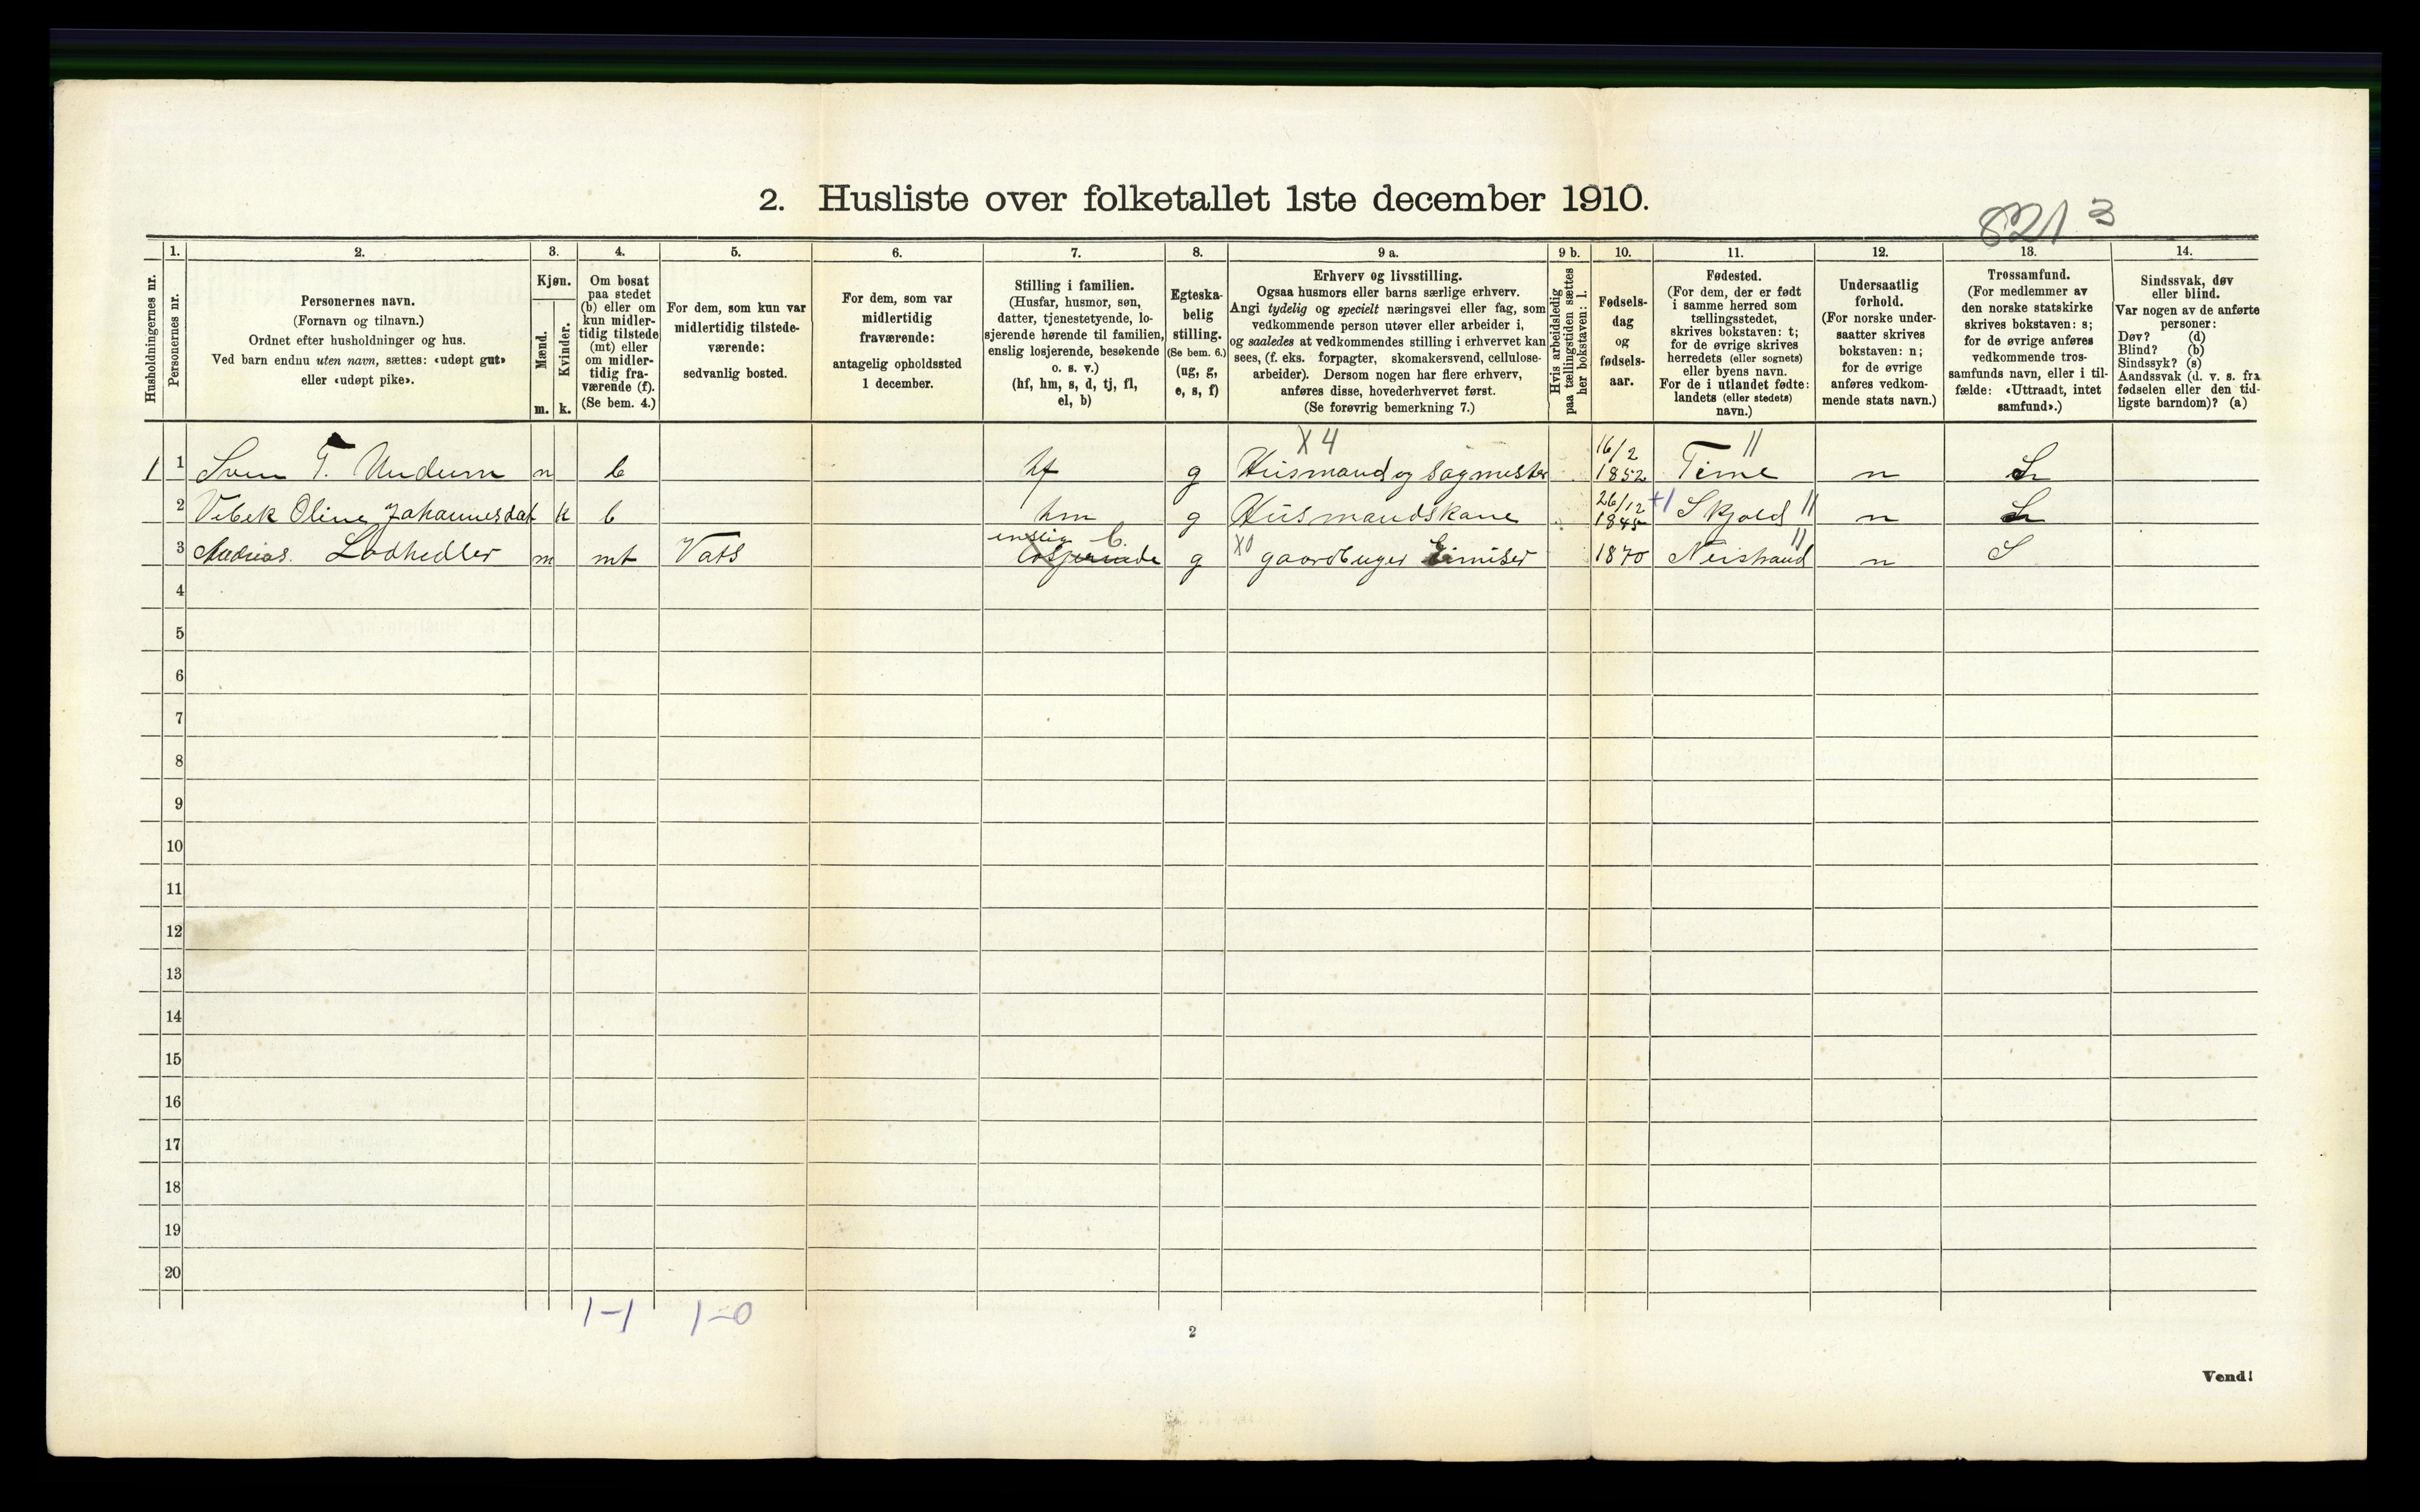 2. Husliste over folketallet 1ste december 1910.
8213
Husholdningernes nr.
1.
Personernes nr.
2.
Personernes navn.
(Fornavn og tilnavn.)
Ordnet efter husholdninger og hus.
Ved barn endnu uten navn, sættes: «udøpt gut»
eller «udøpt pike».
3.
Kjøn.
Mænd.
m.
Kvinder.
k.
4.
Om bosat
paa stedet
(b) eller om
kun midler-
tidig tilstede
(mt) eller
om midler-
tidig fra-
værende (f).
(Se bem. 4.)
5.
For dem, som kun var
midlertidig tilstede-
værende:
sedvanlig bosted.
6.
For dem, som var
midlertidig
fraværende:
antagelig opholdssted
1 december.
7.
Stilling i familien.
(Husfar, husmor, søn,
datter, tjenestetyende, lo-
sjerende hørende til familien,
enslig losjerende, besøkende
o. s. v.)
(hf, hm, s, d, tj, fl,
el, b)
8.
Egteska-
belig
stilling.
(Se bem. 6.)
(ug, g,
e, s, f)
9 a.
Erhverv og livsstilling.
Ogsaa husmors eller barns særlige erhverv.
Angi tydelig og specielt næringsvei eller fag, som
vedkommende person utøver eller arbeider i,
og saaledes at vedkommendes stilling i erhvervet kan
sees, (f. eks. forpagter, skomakersvend, cellulose-
arbeider). Dersom nogen har flere erhverv,
anføres disse, hovederhvervet først.
(Se forøvrig bemerkning 7.)
9 b.
Hvis arbeidsledig
paa tællingstiden sættes
her bokstaven: l.
10.
Fødsels-
dag
og
fødsels-
aar.
11.
Fødested.
(For dem, der er født
i samme herred som
tællingsstedet,
skrives bokstaven: t;
for de øvrige skrives
herredets (eller sognets)
eller byens navn.
For de i utlandet fødte:
landets (eller stedets)
navn.)
12.
Undersaatlig
forhold.
(For norske under-
saatter skrives
bokstaven: n;
for de øvrige
anføres vedkom-
mende stats navn.)
13.
Trossamfund.
(For medlemmer av
den norske statskirke
skrives bokstaven: s;
for de øvrige anføres
vedkommende tros-
samfunds navn, eller i til-
fælde: «Uttraadt, intet
samfund».)
14.
Sindssvak, døv
eller blind.
Var nogen av de anførte
personer:
Døv? (d)
Blind? (b)
Sindssyk? (s)
Aandssvak (d. v. s. fra
fødselen eller den tid-
ligste barndom)? (a)
X 4
1 1 Sven T. Undem m b hf g Husmand og Sagmester 16/2 1852 Time n S
2 Vibek Oline Johannesdat k b hm g Husmandskone 26/12 1845 +1 Skjold n S
enslig b.
3 Lodhedler m mt Vats losjerende g X0 gaardbruger 1870 Neistrand n S
4
5
6
7
8
9
10
11
12
13
14
15
16
17
18
19
20
1-1 1-0
2
Vend!